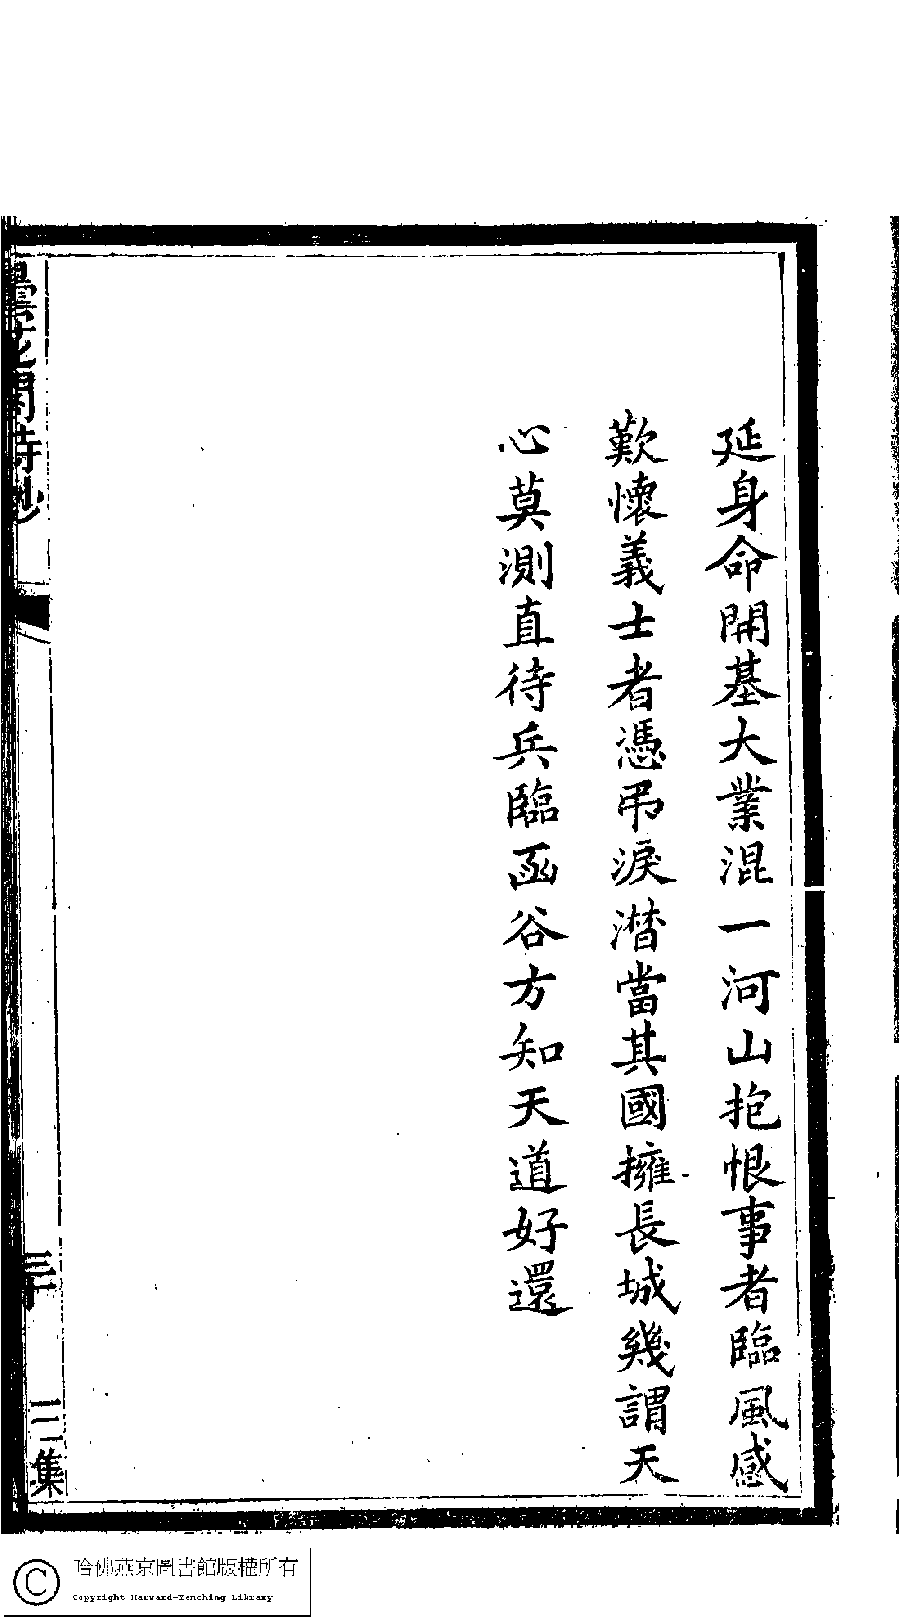 延身命開基大業混一河山抱恨事者臨風感
歎懷義士者憑弔淚潸當其國擁長城幾謂天
心莫測直待兵臨函谷方知天道好還
曇花閣詩鈔
三十
二集
哈佛燕京圖書館版權所有
Copyright Harvard-Yenching Library